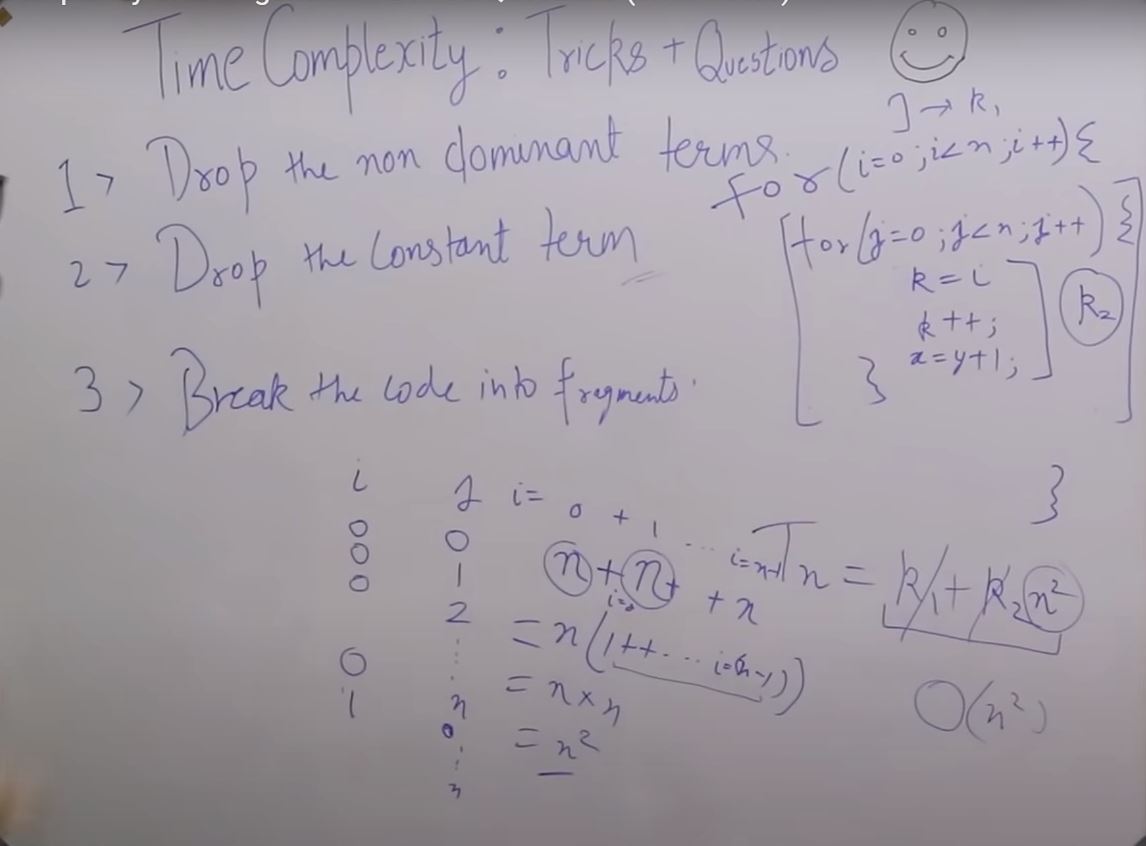 Time Complexity : Tricks + Questions
1> Drop the non dominant terms.
2> Drop the Constant term
3> Break the code into fragments.
] → k₁
for(i=0;i<n;i++){
[for(j=0;j<n;j++){
k=i
k++;
x=y+1;
}
k₂
}
i j
0 0
0 1
0 2
0 n
1 0
n
i= 0 + 1 ... i=n-1
n + n + + n
= n(1++... i=(n-1))
= n×n
= n²
Tn = k₁ + k₂n²
O(n²)